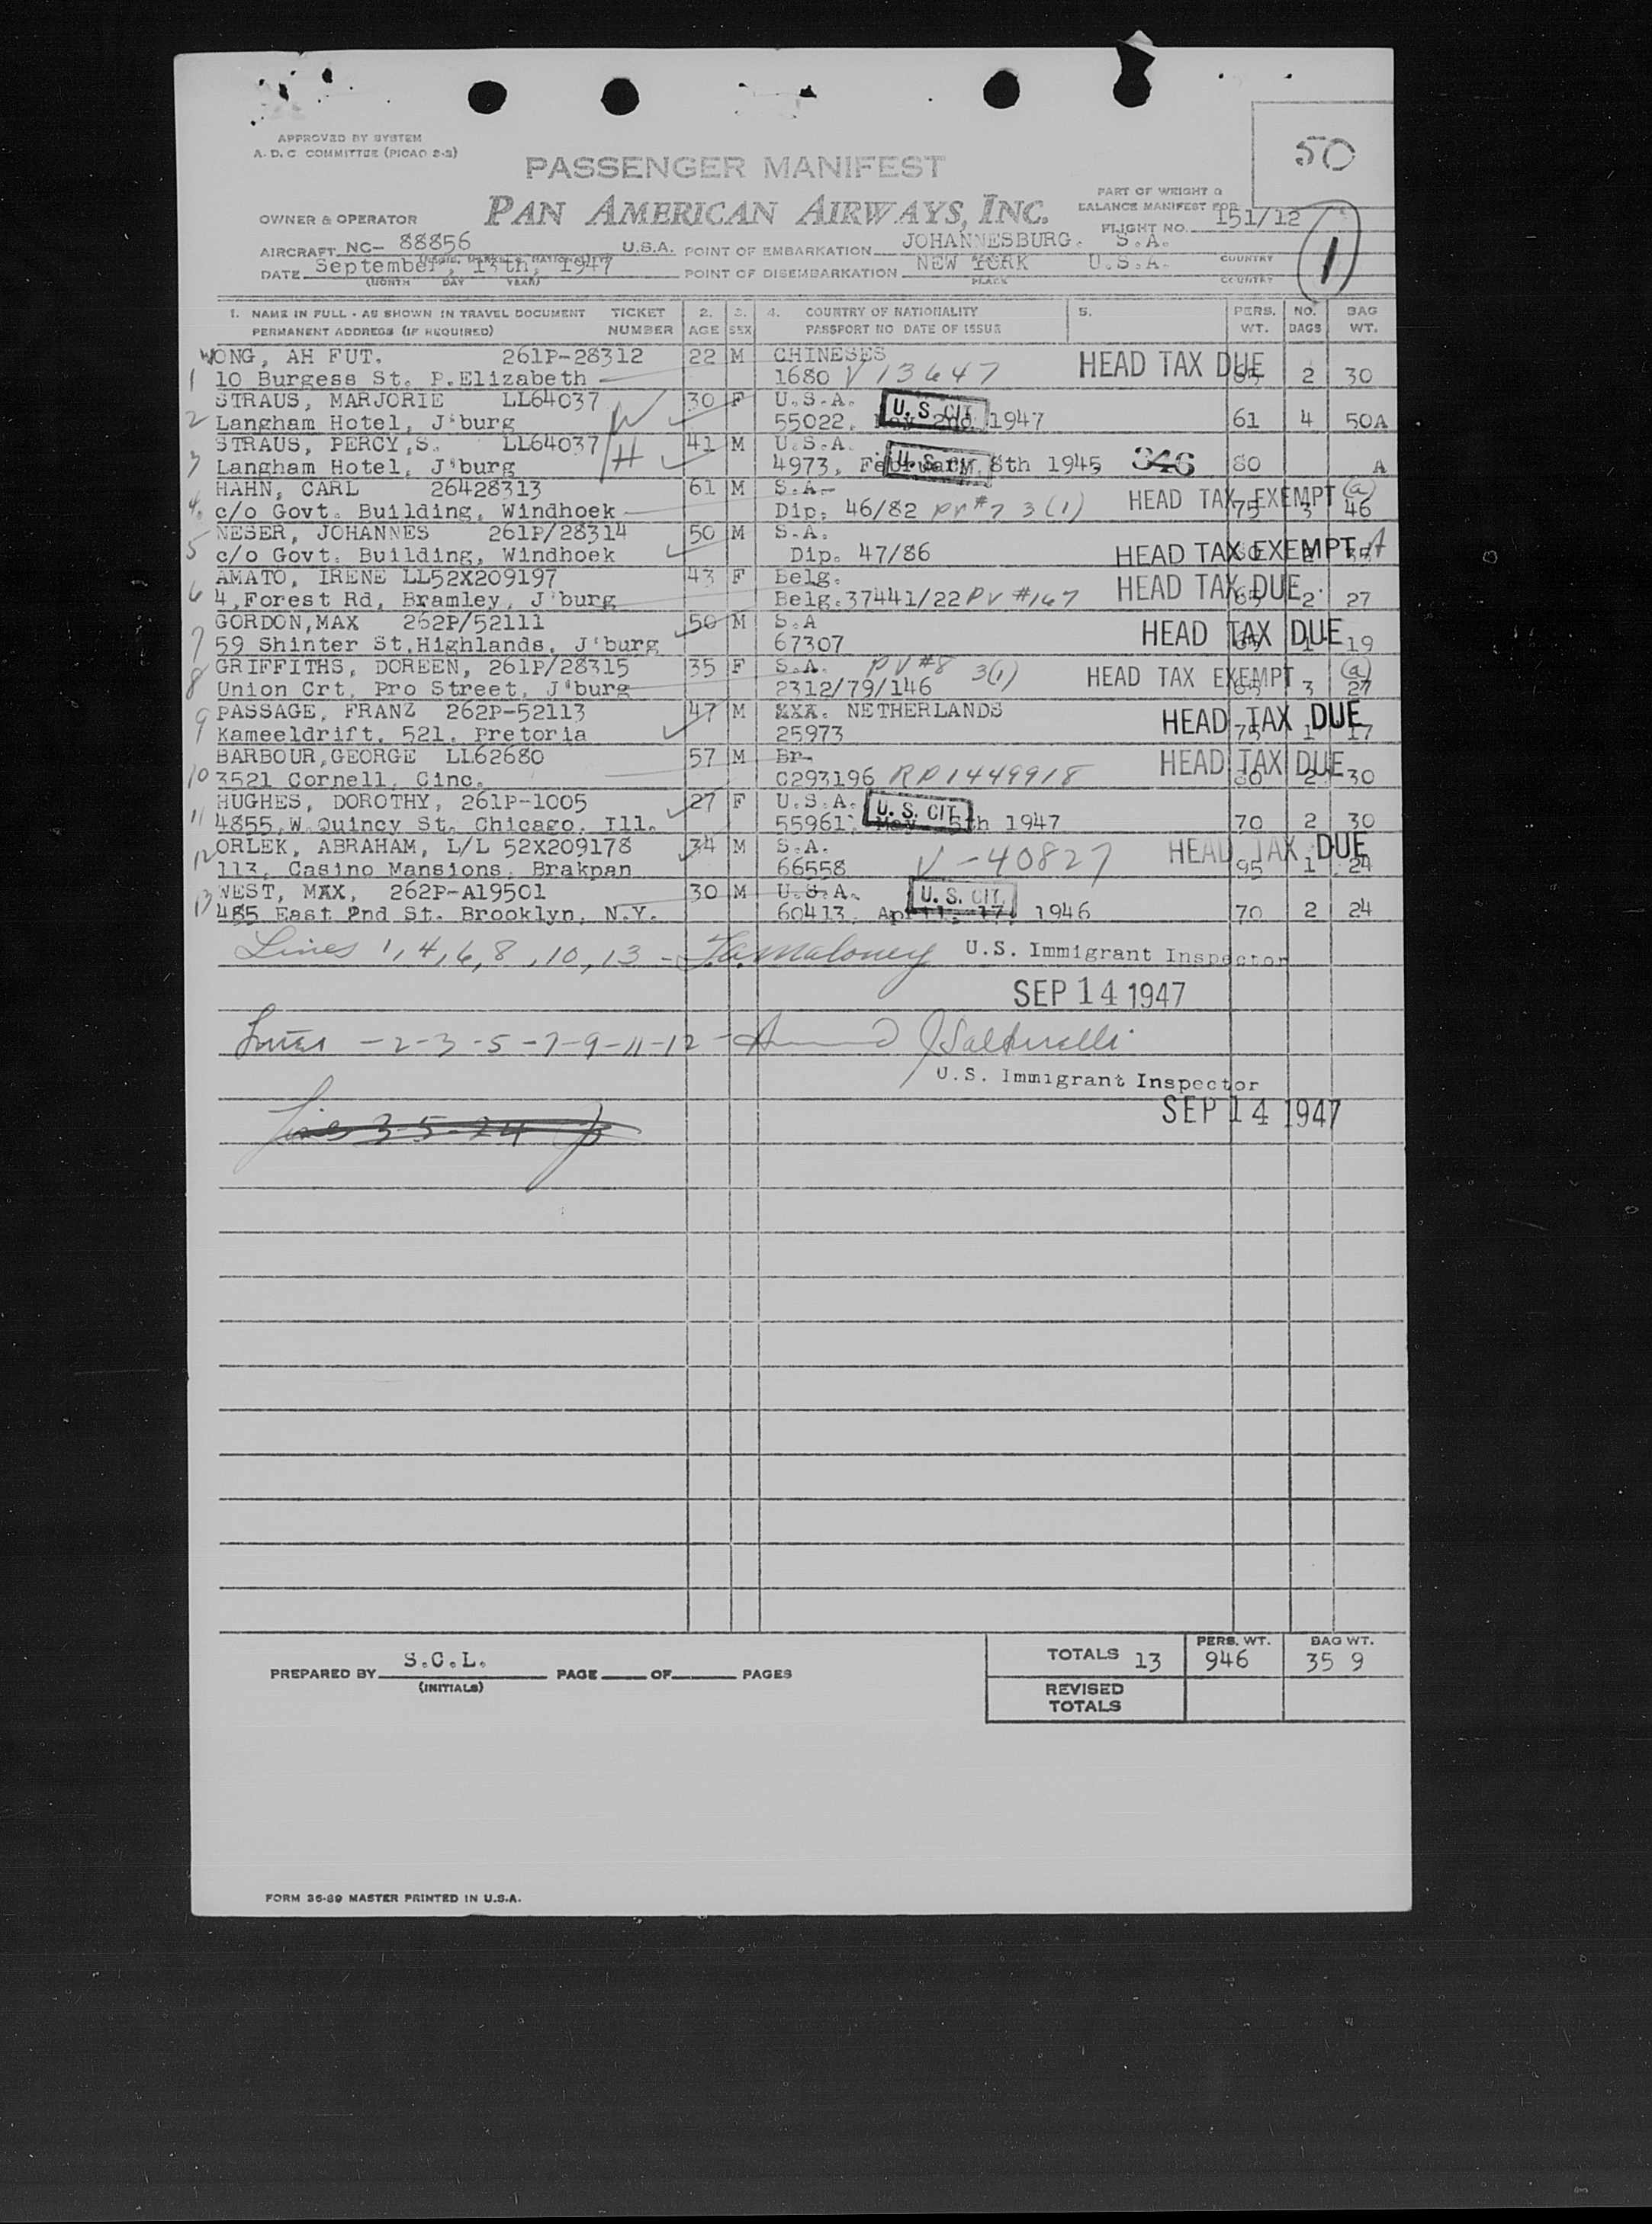 APPROVED BY SYSTEM
A. D. C. COMMITTEE (PICAO 2-2)
50
PASSENGER MANIFEST
PAN AMERICAN AIRWAYS, INC.
PART OF WEIGHT &
BALANCE MANIFEST FOR
FLIGHT NO. 151/12
1
OWNER & OPERATOR
AIRCRAFT NC- 88856 U.S.A. POINT OF EMBARKATION JOHANNESBURG. S.A. COUNTRY
DATE September, 13th, 1947 POINT OF DISEMBARKATION NEW YORK U.S.A. COUNTRY
(MONTH DAY YEAR) PLACE
1. NAME IN FULL - AS SHOWN IN TRAVEL DOCUMENT TICKET 2. 3. 4. COUNTRY OF NATIONALITY 5. PERS. NO. BAG
PERMANENT ADDRESS (IF REQUIRED) NUMBER AGE SEX PASSPORT NO DATE OF ISSUE WT. BAGS WT.
WONG, AH FUT. 261P-28312 22 M CHINESES HEAD TAX DUE
1 10 Burgess St. P.Elizabeth 1680 V 13647 2 30
STRAUS, MARJORIE LL64037 W 30 F U.S.A. U. S. CIT.
2 Langham Hotel, J'burg 55022, May 2nd 1947 61 4 50A
STRAUS, PERCY,S. LL64037 H 41 M U.S.A. U. S. CIT.
3 Langham Hotel, J'burg 4973, February, 8th 1945 346 80 A
HAHN, CARL 26428313 61 M S.A. HEAD TAX EXEMPT (a)
4. c/o Govt. Building, Windhoek Dip. 46/82 PV #7 3(1) 75 3 46
NESER, JOHANNES 261P/28314 50 M S.A.
5 c/o Govt. Building, Windhoek Dip. 47/86 HEAD TAX EXEMPT A
AMATO, IRENE LL52X209197 43 F Belg. HEAD TAX DUE
6 4,Forest Rd, Bramley, J'burg Belg.37441/22 PV #167 65 2 27
GORDON,MAX 262P/52111 50 M S.A HEAD TAX DUE
7 59 Shinter St.Highlands, J'burg 67307 1 19
GRIFFITHS, DOREEN, 261P/28315 35 F S.A. PV #8 3(1) HEAD TAX EXEMPT (a)
8 Union Crt. Pro Street, J'burg 2312/79/146 3 27
PASSAGE, FRANZ 262P-52113 47 M XXX. NETHERLANDS HEAD TAX DUE
9 Kameeldrift. 521. Pretoria 25973 75 1 17
BARBOUR,GEORGE LL62680 57 M Br. HEAD TAX DUE
10 3521 Cornell, Cinc. C293196 RP1449918 80 2 30
HUGHES, DOROTHY, 261P-1005 27 F U.S.A. U. S. CIT.
11 4855,W.Quincy St. Chicago, Ill. 55961, May 5th 1947 70 2 30
ORLEK, ABRAHAM, L/L 52X209178 34 M S.A. HEAD TAX DUE
12 113, Casino Mansions, Brakpan 66558 V-40827 95 1 24
WEST, MAX, 262P-A19501 30 M U.S.A. U. S. CIT.
13 485 East 2nd St. Brooklyn, N.Y. 60413, April, 17, 1946 70 2 24
Lines 1,4,6,8,10,13 - Maloney U.S. Immigrant Inspector
SEP 14 1947
Lines -2-3-5-7-9-11-12-
U.S. Immigrant Inspector
SEP 14 1947
Lines 3-5-
PREPARED BY S.C.L. PAGE OF PAGES
(INITIALS)
PERS. WT. BAG WT.
TOTALS 13 946 35 9
REVISED
TOTALS
FORM 36-89 MASTER PRINTED IN U.S.A.